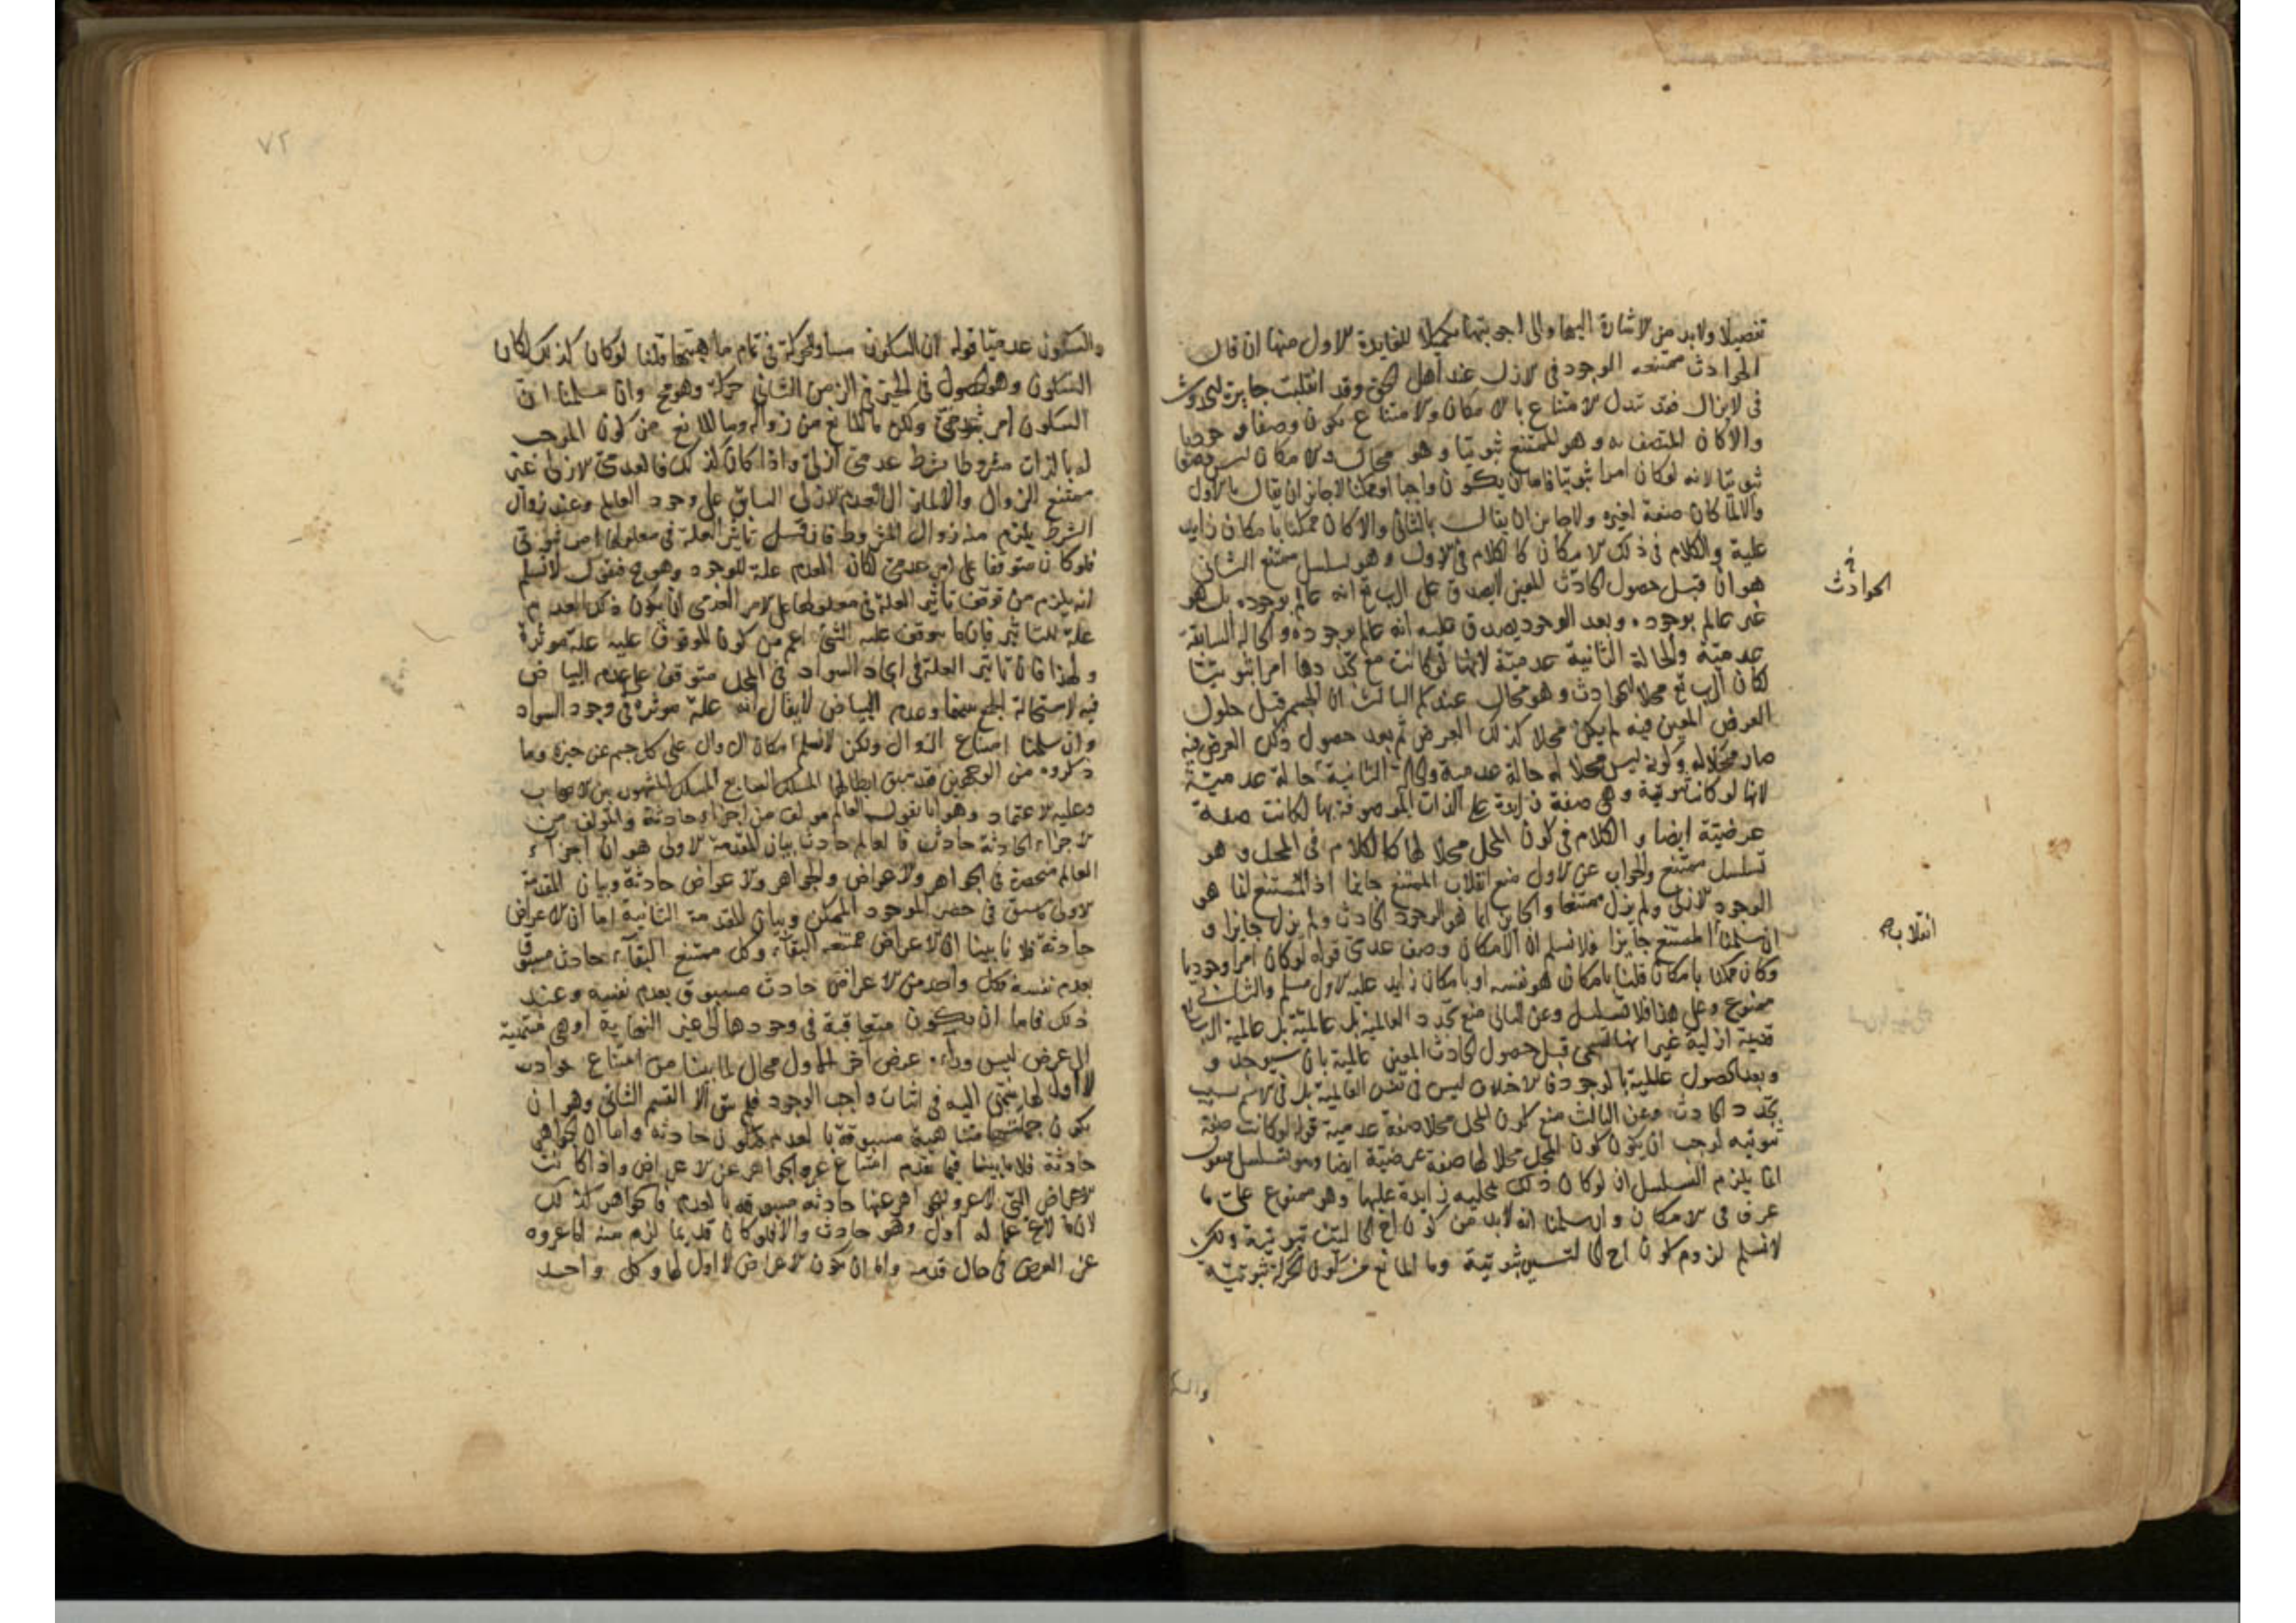 تفصيلا ولابد من الاشارة اليها والى اجوبتها تكميلا للفايدة الاول منها ان قال
الحوادث ممتنعه الوجود فى الازل عند اهل الحق وقد انقلبت جايزة الحدوث
فى لايزال فقد تبدل الامتناع بالامكان والامتناع يكون وصفا وجوديا
والا كان المتصف به وهو الممتنع ثبوتيا وهو محال والامكان ليس وصفا
ثبوتيا لانه لو كان امرا ثبوتيا فاما ان يكون واجبا او ممكنا لاجايز ان يقال بالاول
والا لما كان صفة لغيره ولاجايز ان يقال بالثانى والا كان ممكنا بامكان زايد
عليه والكلام فى ذلك الامكان كالكلام فى الاول وهو تسلسل ممتنع الثانى
هو ان قبل حصول الحادث المعين لايصدق على الرب تع انه عالم بوجوده بل هو
غير عالم بوجوده وبعد الوجود يصدق عليه انه عالم بوجوده والحالة السابقة
عدميّة والحالة الثانية عدميّة لانها لو كانت مع تجددها امرا ثبوتيّا
لكان الرب تع محلا للحوادث وهو محال عندكم الثالث ان الجسم قبل حلول
العرض المعين فيه لم يكن محلا لذلك العرض ثم بعد حصول ذلك العرض فيه
صار محلا له وكونه ليس محلا له حالة عدمية والحالة الثانية حالة عدميّة
لانها لو كانت ثبوتية وهى صفة زايدة على الذات الموصوفة بها لكانت صفة
عرضيّة ايضا والكلام فى كون المحل محلا لها كالكلام فى المحل وهو
تسلسل ممتنع والجواب عن الاول منع انقلاب الممتنع جايزا اذ الممتنع انما هو
الوجود الازلى ولم يزل ممتنعا والجايز انما هو الوجود الحادث ولم يزل جايزا و
ان سلمنا الممتنع جايزا فلا نسلم ان الامكان وصف عدمى قوله لو كان امرا وجوديا
وكان ممكنا بامكان قلنا بامكان هو نفسه او بامكان زايد عليه الاول مسلم والثانى
ممنوع وعلى هذا فلا تسلسل وعن الثانى منع تجدد العالمية بل عالمية الرب تعالى
قديمة ازلية غير انها تسمى قبل حصول الحادث المعين عالمية بان سيوجد و
وبعد الحصول عالمية بالوجود فالاختلاف ليس فى نفس العالمية بل فى الاسم بسبب
تجدد الحادث وعن الثالث منع كون المحل محلا صفة عدمية قوله لو كانت صفة
ثبوتيه لوجب ان يكون كون المحل محلا لها صفة عرضيّة ايضا وهو تسلسل فنقول
انما يلزم التسلسل ان لو كان ذلك المحلية زايدة عليها وهو ممنوع على ما
عرف فى الامكان وان سلمنا انه لابد من كون احد الحالتين ثبوتية ولكن
لانسلم لزوم كون احد الحالتين ثبوتية وما المانع من كون الحركة ثبوتيّه
فى
الحوادث
انقلابه
والسكون
٧٢
والسكون عدميّا قوله ان السكون مساو للحركة فى تمام ماهيتها قلنا لو كان كذلك لكان
السكون وهو الحصول فى الحيز فى الزمن الثانى حركة وهو مح وان سلمنا ان
السكون امر ثبوتى ولكن ما المانع من زواله وما المانع من كون الموجب
له بالذات مشروطا بشرط عدمى ازلى واذا كان كذلك فالعدمى الازلى غير
ممتنع الزوال والا لما زال العدم الازلى السابق على وجود العالم وعند زوال
الشرط يلزم منه زوال المشروط فان قيل تاثير العلة فى معلولها امر ثبوتى
فلو كان متوقفا على امر عدمى لكان العدم علة للوجود وهو مح فنقول لانسلم
انه يلزم من توقف تاثير العلة فى معلولها على الامر العدمى ان يكون ذلك العدم
علة للتاثير فان ما يتوقف عليه الشئ اعم من كون الموقوف عليه علة موثرة
ولهذا فان تاثير العلة فى ايجاد السواد فى المحل متوقف على عدم البياض
فيه لاستحالة الجمع بينهما وعدم البياض لايقال انه علة موثرة فى وجود السواد
وان سلمنا امتناع الزوال ولكن لانسلم امكان الزوال على كل جسم عن حيزه وما
ذكروه من الوجهين فقد سبق ابطالها المسلك السابع المسلك المشهور بين الاصحاب
وعليه الاعتماد وهو انا نقول العالم مولف من اجزاء حادثة والمولف من
الاجزاء الحادثة حادث فالعالم حادث بيان المقدمة الاولى هو ان اجزاء
العالم منحصرة فى الجواهر والاعراض والجواهر والاعراض حادثة وبيان المقدمة
الاولى ما سبق فى حصر الموجود الممكن وبيان المقدمة الثانية اما ان الاعراض
حادثة فلانا بينا ان الاعراض ممتنعه البقاء وكل ممتنع البقاء حادث مسبوق
بعدم نفسه فكل واحد من الاعراض حادث مسبوق بعدم نفسه وعند
ذلك فاما ان يكون متعاقبة فى وجودها الى غير النهاية او هى منتهية
الى عرض ليس وراءه عرض آخر الاول محال لما بينا من امتناع حوادث
لا اول لها تنتهى اليه فى اثبات واجب الوجود فلم يبق الا القسم الثانى وهو ان
يكون جملتها متناهية مسبوقة بالعدم فيكون حادثه واما ان الجواهر
حادثة فلانا بينا فيما تقدم امتناع عرو الجواهر عن الاعراض واذا كانت
الاعراض التى لاعرو للجواهر عنها حادثه مسبوقه بالعدم فالجواهر كذلك
لان ما لايخ عما له اول وهو حادث والا فلو كان قديما لزم منه اما عروه
عن العرض فى حال قدمه واما ان يكون الاعراض لا اول لها وكل واحد